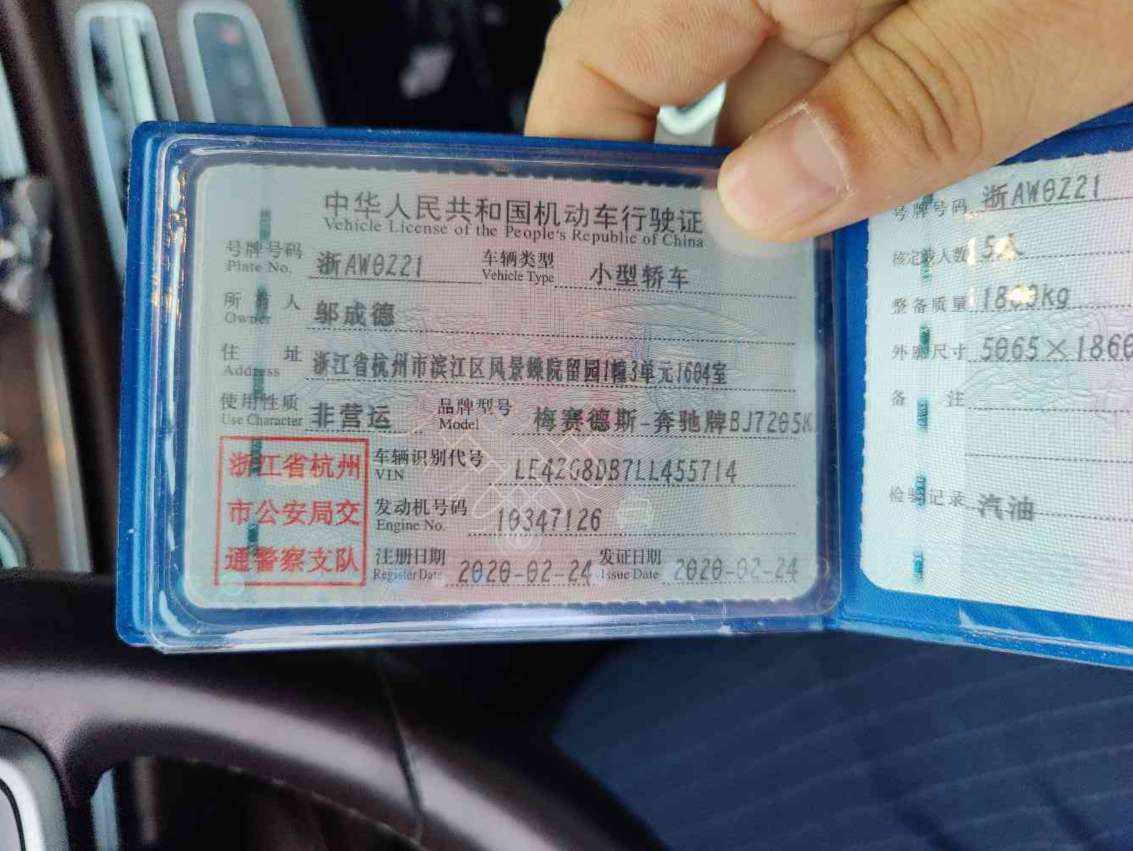 中华人民共和国机动车行驶证
Vehicle License of the People's Republic of China
号牌号码 浙AW0Z21 车辆类型 小型轿车
Plate No. Vehicle Type
所有人 邬成德
Owner
住址 浙江省杭州市滨江区风景蝶院留园1幢3单元1604室
Address
使用性质 非营运 品牌型号 梅赛德斯-奔驰牌BJ7205K
Use Character Model
浙江省杭州
市公安局交
通警察支队
车辆识别代号 LE4ZG8DB7LL455714
VIN
发动机号码 10347126
Engine No.
注册日期 2020-02-24 发证日期 2020-02-24
Register Date Issue Date
号牌号码 浙AW0Z21
核定载人数 5人
整备质量 kg
外廓尺寸 5065×1860
备注
检验记录 汽油